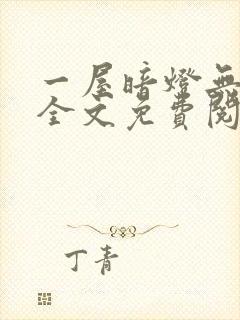 一屋暗燈無
全文免費閱
丁青